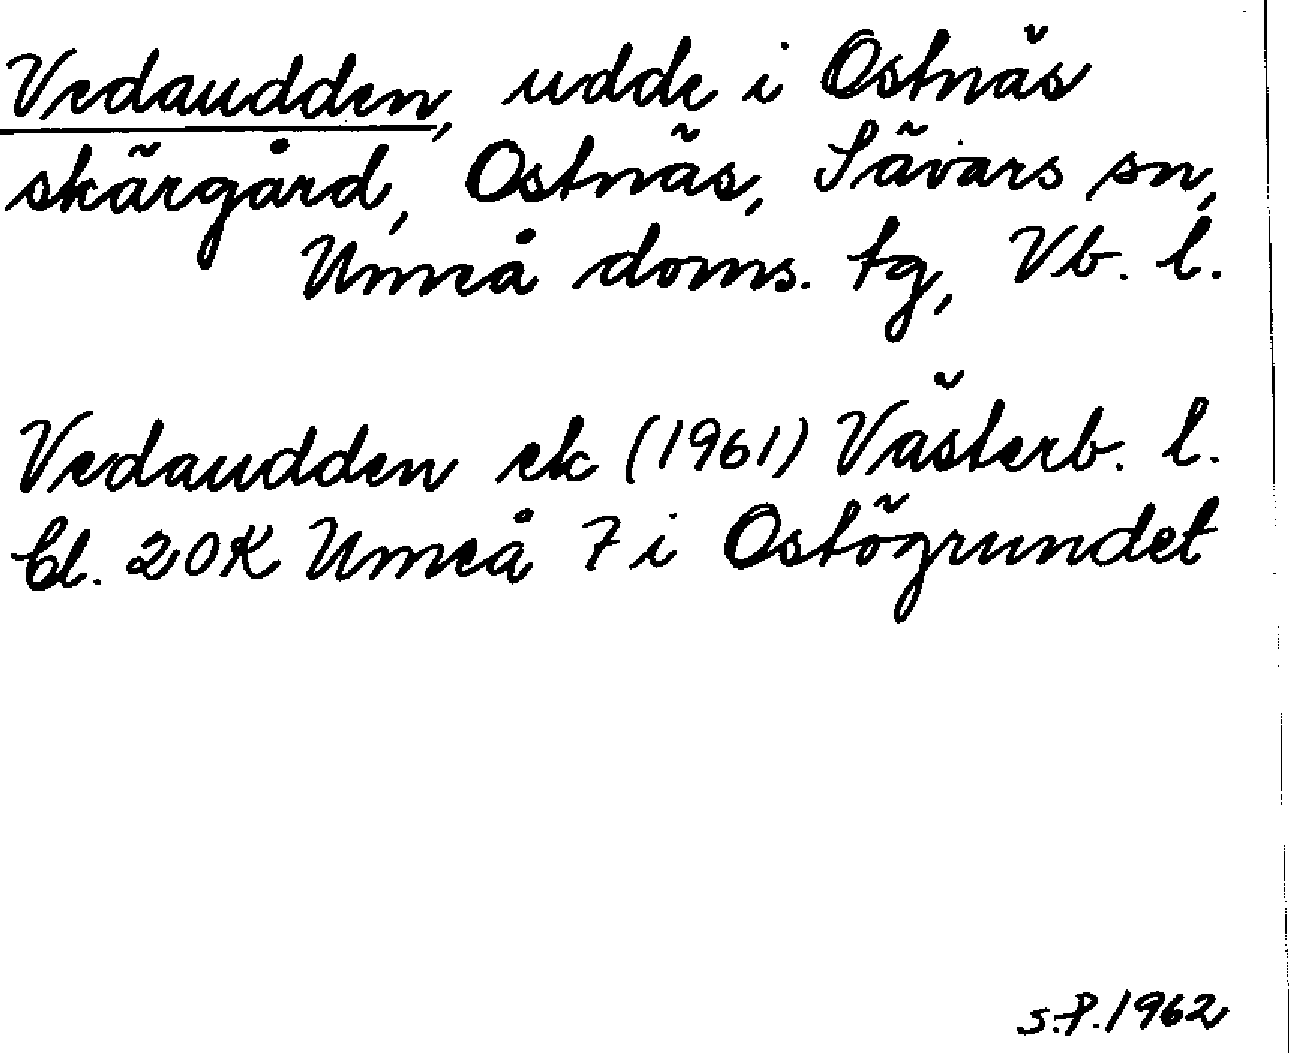 Vedaudden, udde i Ostnäs
skärgård, Ostnäs, Sävars sn,
Umeå doms. tg, Vb. l.
Vedaudden ek (1961) Västerb. l.
bl. 20K Umeå 7 i Ostögrundet
S.P. 1962